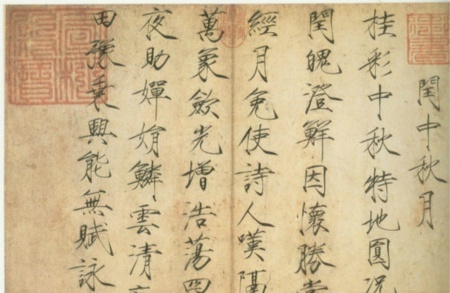 閏中秋月
桂彩中秋特地圓况
閏魄澄鮮因懷勝賞
經月免使詩人嘆隔
萬象歛光增浩蕩四
夜助嬋娟鱗雲清
田豫乘興能無賦詠